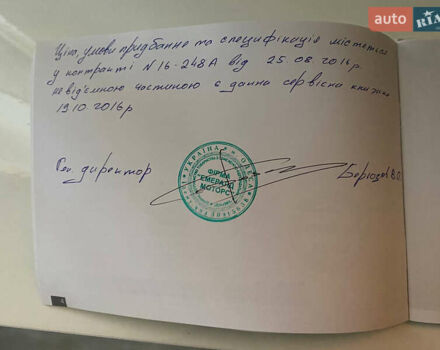 auto RIA
Ціна, умови придбання та специфікація містяться
у контракті N 16-248А від 25.08.2016р.
невід'ємною частиною є данна сервісна книжка
19.10.2016р
Ген. директор
УКРАЇНА ОДЕСА
ФІРМА
"ЕМЕРАЛД
МОТОРС"